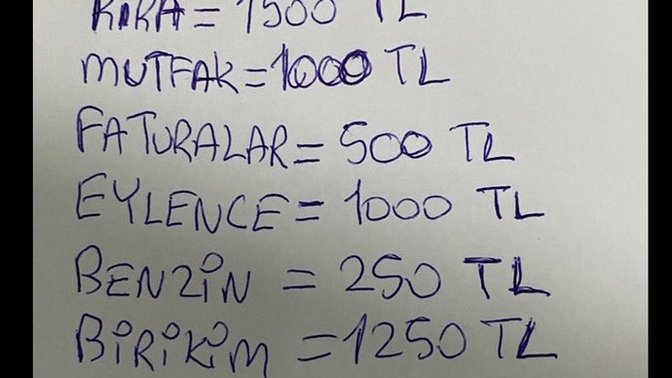 KİRA = 1500 TL
MUTFAK = 1000 TL
FATURALAR = 500 TL
EYLENCE = 1000 TL
BENZİN = 250 TL
BİRİKİM = 1250 TL